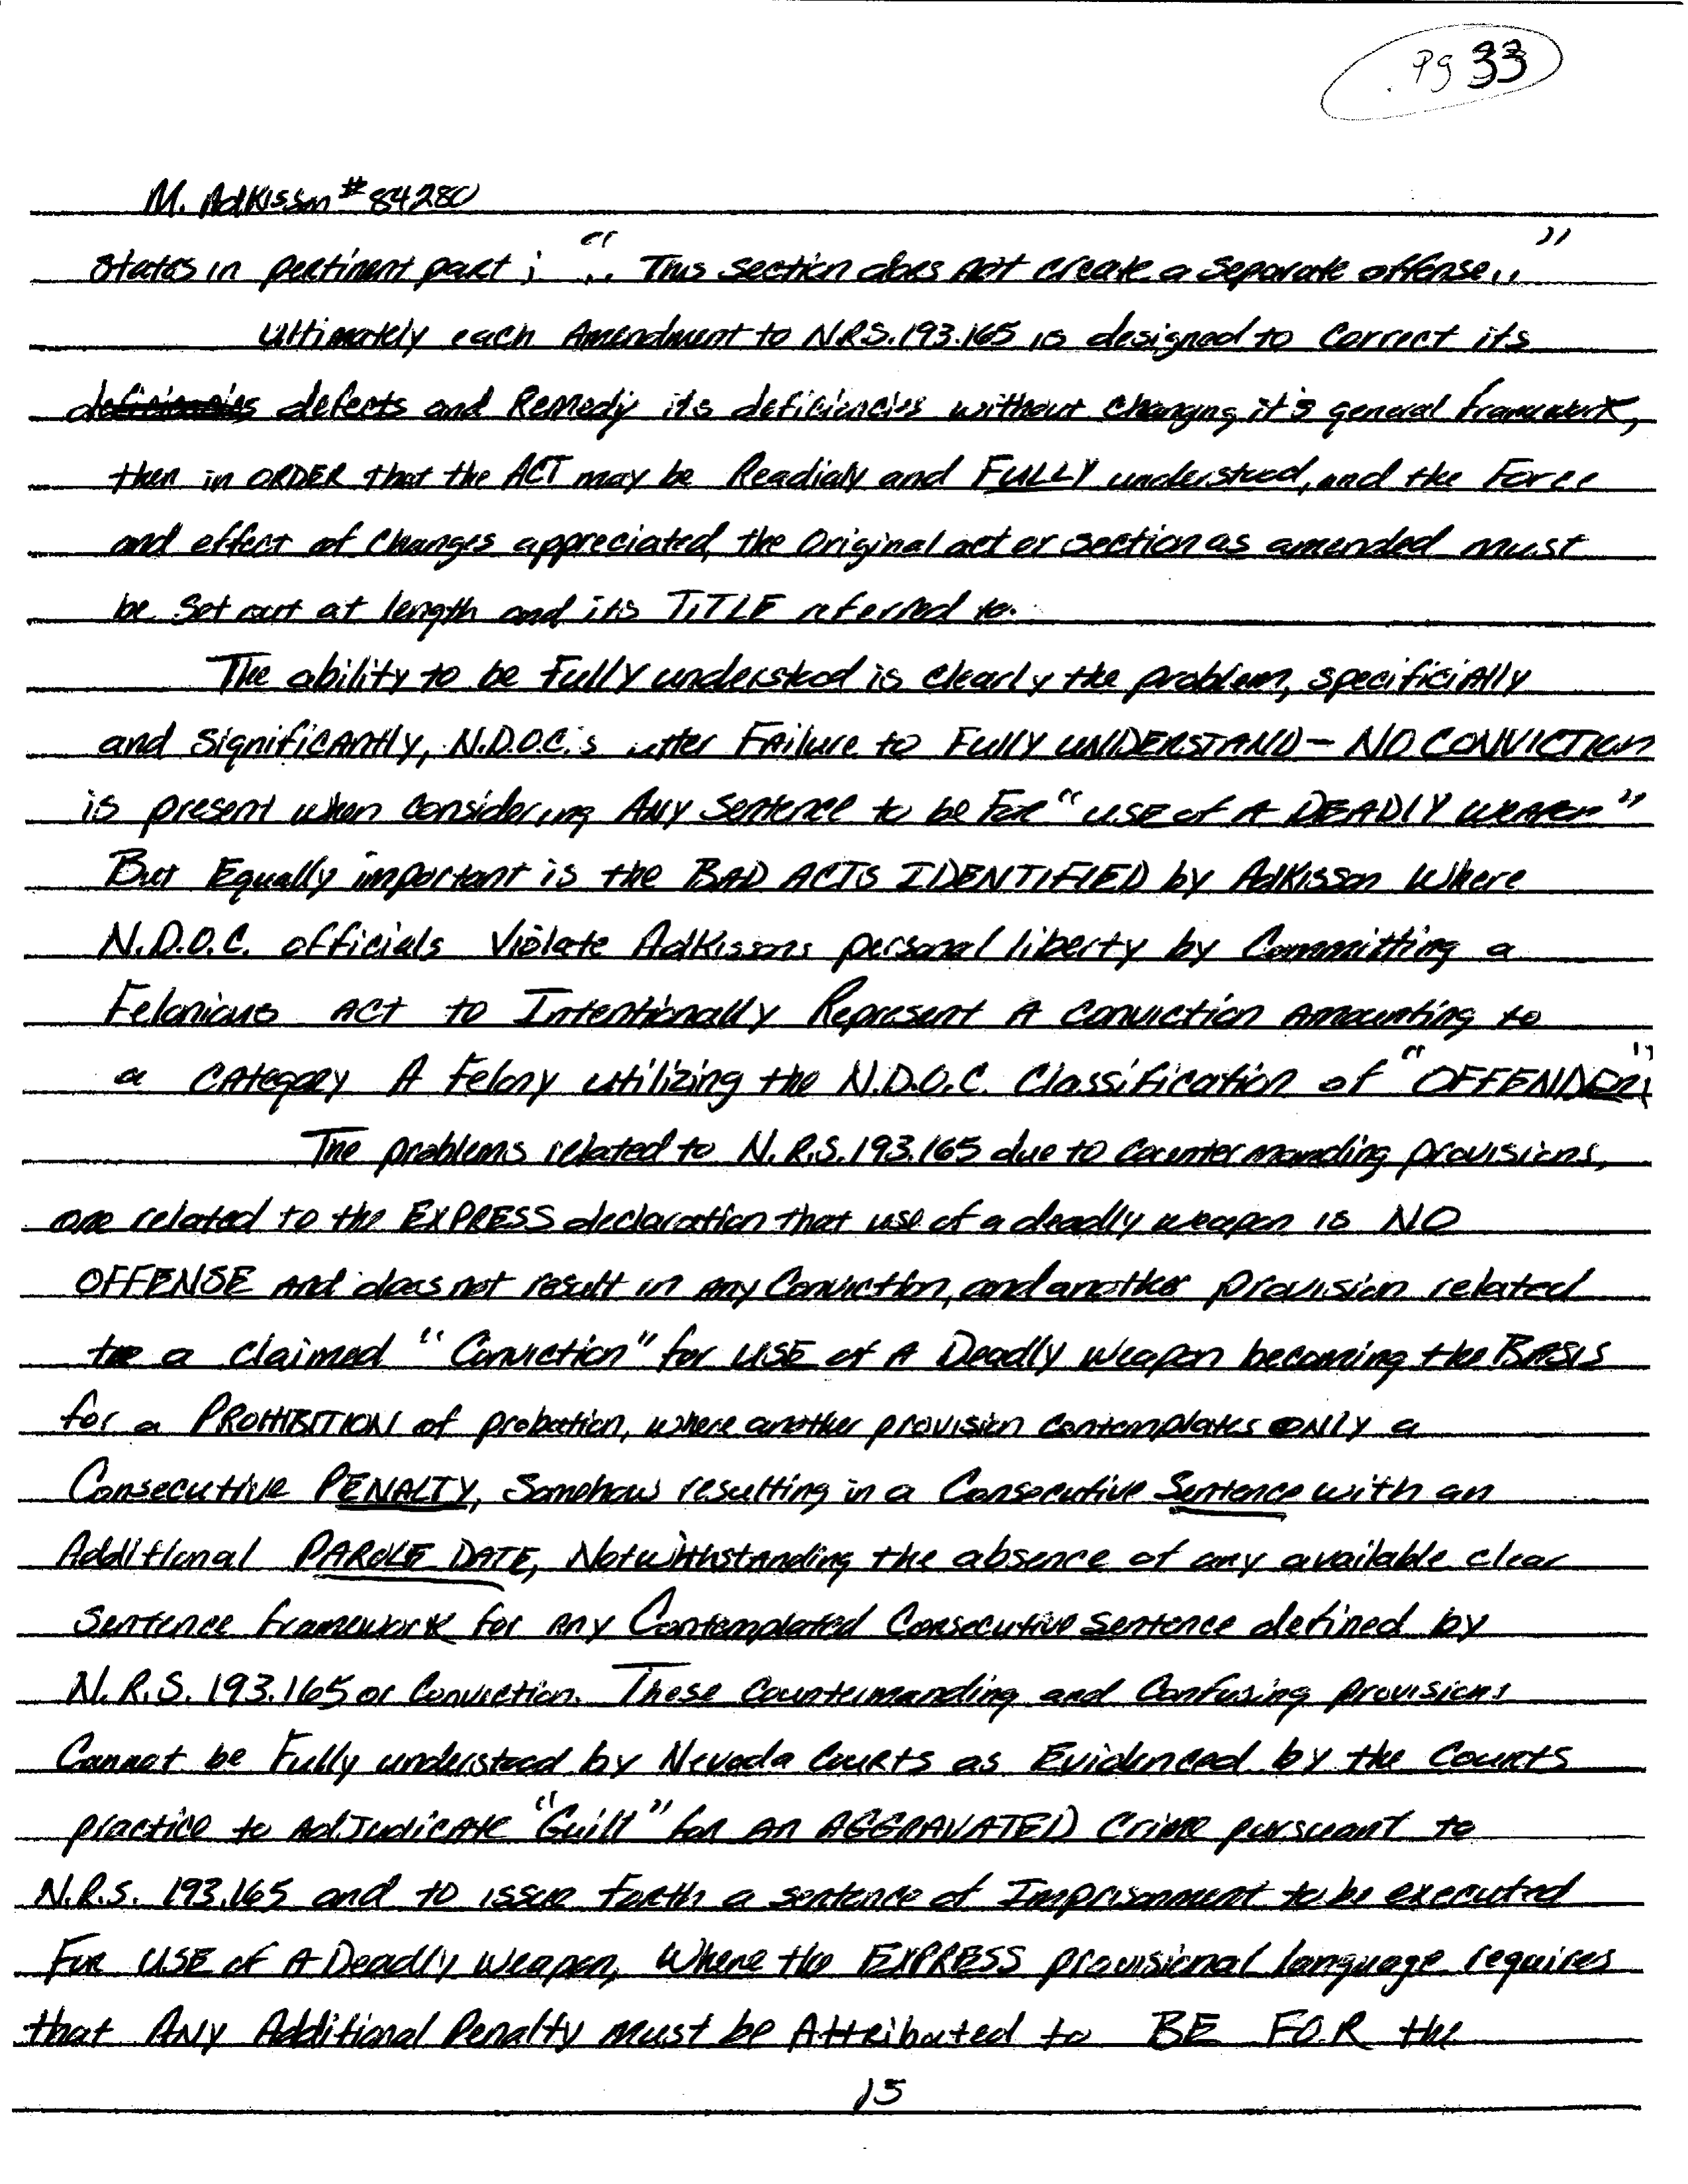 Pg 33
M. Adkisson # 84280
states in pertinent part; "... This section does not create a separate offense..."
Ultimately each Amendment to N.R.S. 193.165 is designed to correct its
defects and Remedy its deficiencies without changing it's general framework,
then in ORDER that the ACT may be Readialy and FULLY understood, and the Force
and effect of changes appreciated, the Original act or section as amended must
be set out at length and its TITLE referred to.
The ability to be Fully understood is clearly the problem, specificially
and significantly, N.D.O.C.'s utter Failure to Fully UNDERSTAND - NO CONVICTION
is present when considering Any sentence to be For "USE of A DEADLY WEAPON"
But Equally important is the BAD ACTS IDENTIFIED by Adkisson Where
N.D.O.C. officials Violate Adkissons personal liberty by Committing a
Felonious ACT to Intentionally Represent A conviction Amounting to
a CAtegory A Felony utilizing the N.D.O.C. Classification of "OFFENDER"
The problems related to N.R.S. 193.165 due to countermanding provisions,
are related to the EXPRESS declaration that use of a deadly weapon is NO
OFFENSE And does not result in Any Conviction, and another provision related
to a claimed "Conviction" for USE of A Deadly Weapon becoming the BASIS
for a PROHIBITION of probation, where another provision contemplates ONLY a
Consecutive PENALTY, Somehow resulting in a Consecutive Sentence with an
Additional PAROLE DATE, Notwithhstanding the absence of any available clear
Sentence framework for Any Contemplated Consecutive sentence defined by
N.R.S. 193.165 or Conviction. These Countermanding and Confusing provisions
Cannot be Fully understood by Nevada Courts as Evidenced by the Courts
practice to AdJudicate "Guilt" for An AGGRAVATED Crime pursuant to
N.R.S. 193.165 and to issue forth a sentence of Imprisonment to be executed
For USE of A Deadly Weapon, Where the EXPRESS provisional language requires
that Any Additional Penalty must be Attributed to BE FOR the
15